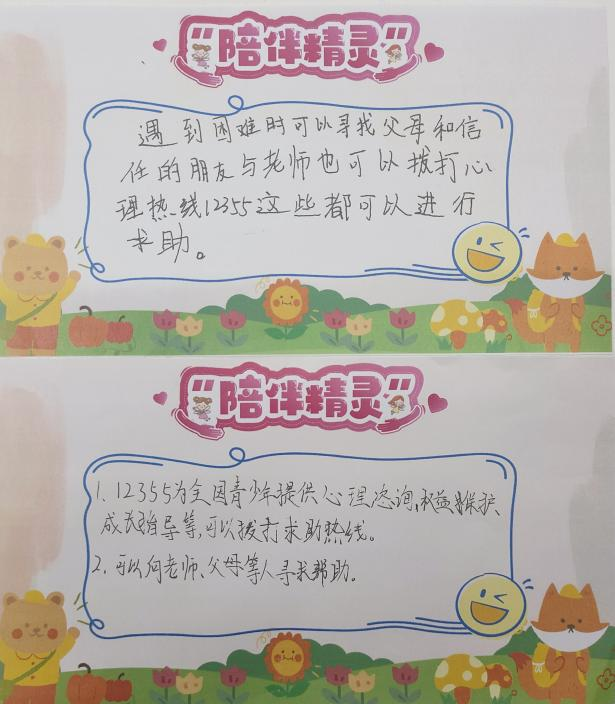 “陪伴精灵”
遇到困难时可以寻找父母和信
任的朋友与老师也可以拨打心
理热线12355这些都可以进行
求助。
“陪伴精灵”
1. 12355为全国青少年提供心理咨询,权益保护、
成长指导等,可以拨打求助热线。
2. 可以向老师、父母等人寻求帮助。